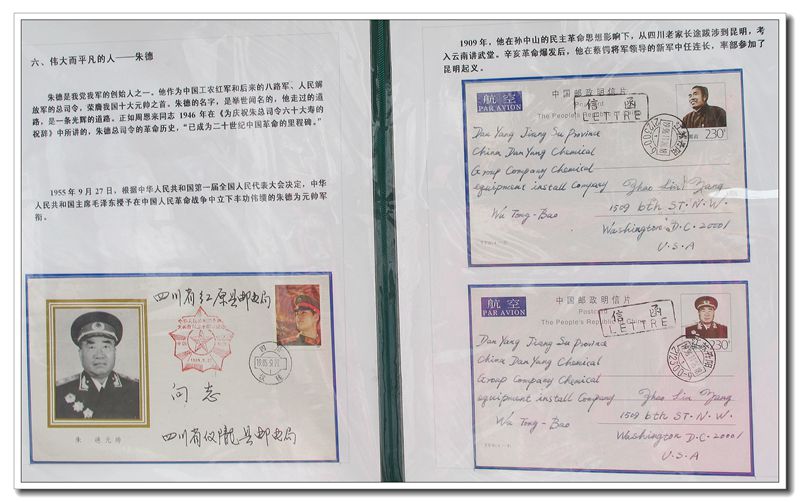 六、伟大而平凡的人——朱德
朱德是我党我军的创始人之一。他作为中国工农红军和后来的八路军、人民解
放军的总司令，荣膺我国十大元帅之首。朱德的名字，是举世闻名的，他走过的道
路，是一条光辉的道路。正如周恩来同志 1946 年在《为庆祝朱总司令六十大寿的
祝辞》中所讲的，朱德总司令的革命历史，“已成为二十世纪中国革命的里程碑。”
1955 年 9 月 27 日，根据中华人民共和国第一届全国人民代表大会决定，中华
人民共和国主席毛泽东授予在中国人民革命战争中立下丰功伟绩的朱德为元帅军
衔。
四川省红原县邮电局
向志
四川省仪陇县邮电局
朱德元帅
1909 年，他在孙中山的民主革命思想影响下，从四川老家长途跋涉到昆明，考
入云南讲武堂。辛亥革命爆发后，他在蔡锷将军领导的新军中任连长，率部参加了
昆明起义。
航空
PAR AVION
中国邮政明信片
Postcard
The People's Republic
信函
LETTRE
230
Dan Yang Jiang Su Province
China Dan Yang Chemical
Group Company Chemical
equipment install Company
Wu Tong-Bao
Zhao Lin Zhang
1509 6th ST. N.W.
Washington D.C. 20001
U.S.A
航空
PAR AVION
中国邮政明信片
Postcard
The People's Republic
信函
LETTRE
230
Dan Yang Jiang Su Province
China Dan Yang Chemical
Group Company Chemical
equipment install Company
Wu Tong-Bao
Zhao Lin Zhang
1509 6th ST. N.W.
Washington D.C. 20001
U.S.A